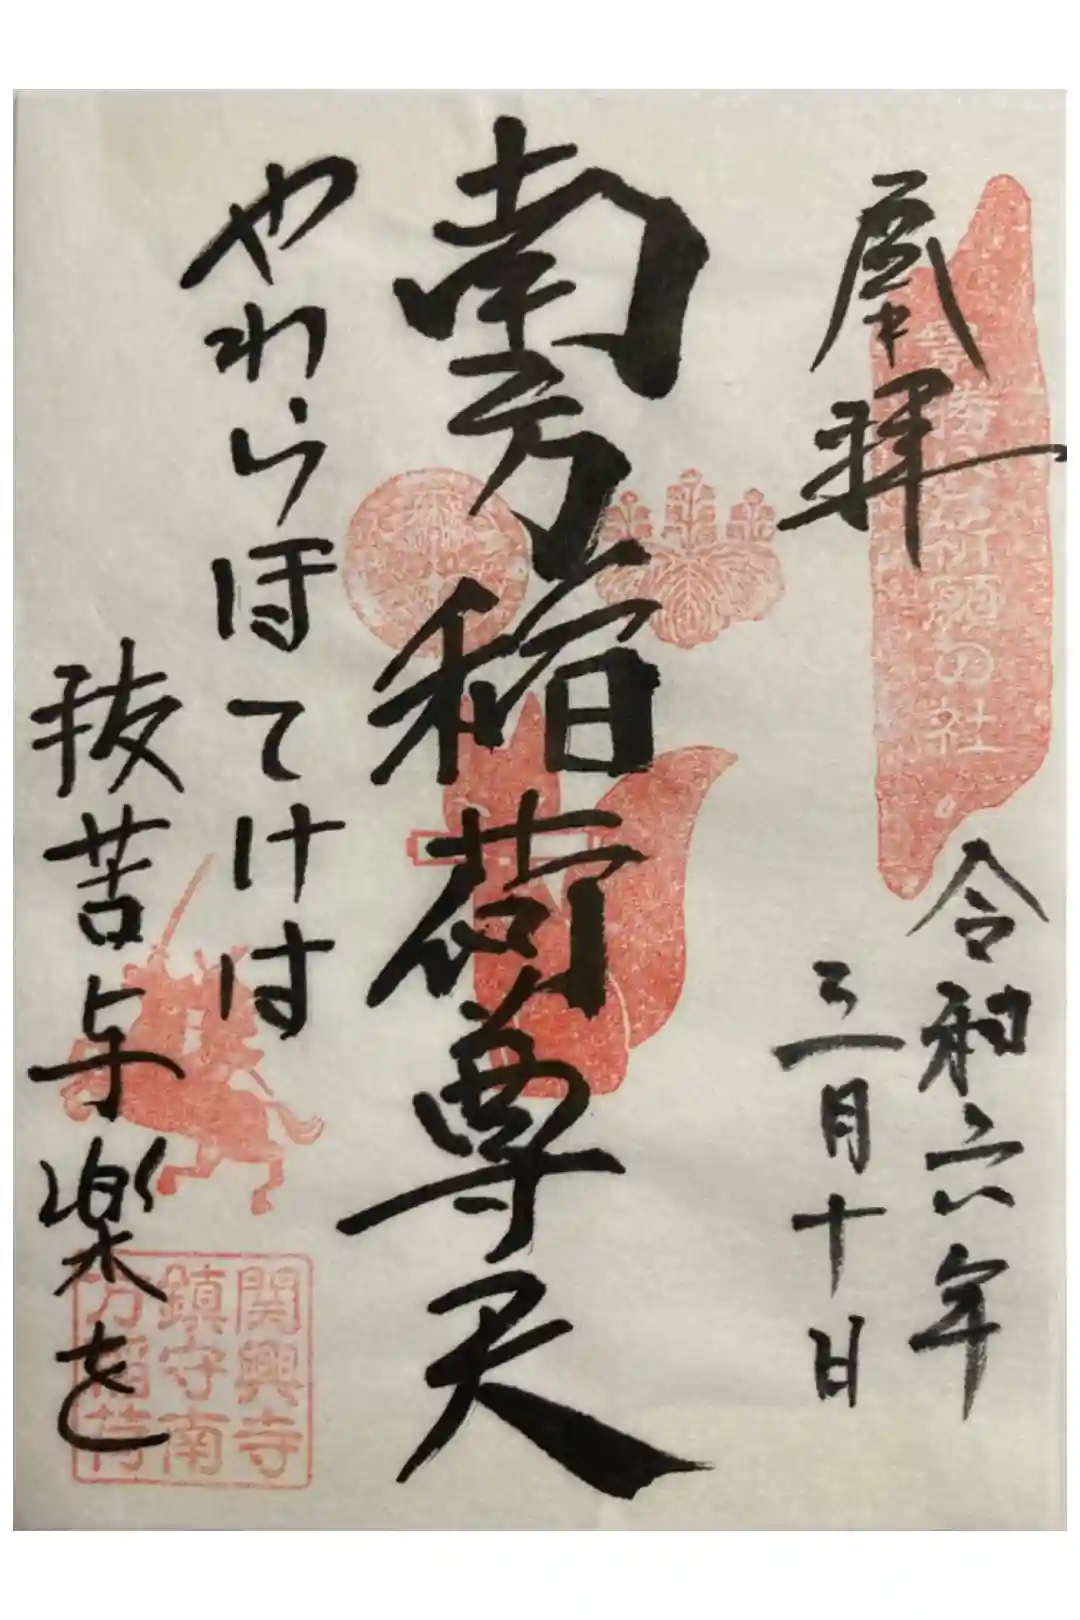 祈願の社
奉拝
令和六年
三月十日
南方稲荷尊天
やわらほてけは
抜苦与楽を
関興寺
鎮守南
方稲荷